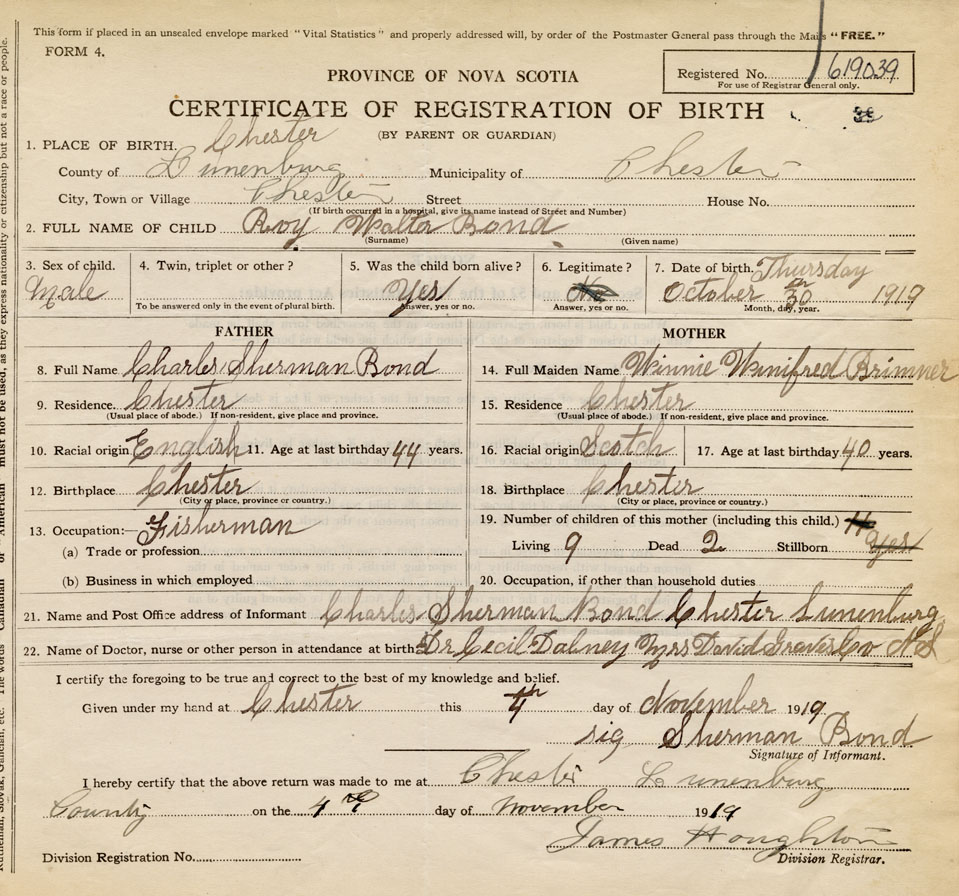 This form if placed in an unsealed envelope marked "Vital Statistics" and properly addressed will, by order of the Postmaster General pass through the Mails "FREE."
FORM 4.
Registered No. 619039
For use of Registrar General only.
PROVINCE OF NOVA SCOTIA
CERTIFICATE OF REGISTRATION OF BIRTH
(BY PARENT OR GUARDIAN)
1. PLACE OF BIRTH. Chester
County of Lunenburg Municipality of Chester
City, Town or Village Chester Street House No.
(If birth occurred in a hospital, give its name instead of Street and Number)
2. FULL NAME OF CHILD Roy Walter Bond
(Surname) (Given name)
3. Sex of child. 4. Twin, triplet or other? 5. Was the child born alive? 6. Legitimate? 7. Date of birth. Thursday
Male Yes October 30 1919
To be answered only in the event of plural birth. Answer, yes or no. Answer, yes or no. Month, day, year.
FATHER MOTHER
8. Full Name Charles Sherman Bond 14. Full Maiden Name Winnie Winifred Brimner
9. Residence Chester 15. Residence Chester
(Usual place of abode.) If non-resident, give place and province. (Usual place of abode.) If non-resident, give place and province.
10. Racial origin English 11. Age at last birthday 44 years. 16. Racial origin Scotch 17. Age at last birthday 40 years.
12. Birthplace Chester 18. Birthplace Chester
(City or place, province or country.) (City or place, province or country.)
13. Occupation:- Fisherman 19. Number of children of this mother (including this child.)
(a) Trade or profession Living 9 Dead 2 Stillborn Yes
(b) Business in which employed 20. Occupation, if other than household duties
21. Name and Post Office address of Informant Charles Sherman Bond Chester Lunenburg
22. Name of Doctor, nurse or other person in attendance at birth Dr Cecil Dabney Mrs David Graves Co N S
I certify the foregoing to be true and correct to the best of my knowledge and belief.
Given under my hand at Chester this 4th day of November 1919
sig Sherman Bond
Signature of Informant.
I hereby certify that the above return was made to me at Chester Lunenburg
County on the 4 day of November 1919
James Houghton
Division Registration No. Division Registrar.
must not be used, as they express nationality or citizenship but not a race or people.
Ruthenian, Slovak, Galician, etc. The words Canadian or American